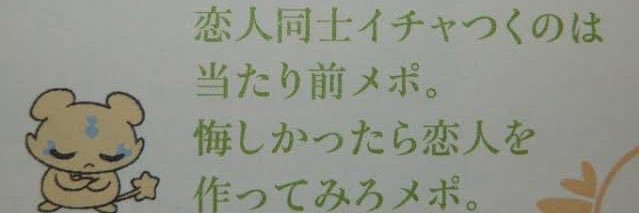 恋人同士イチャつくのは
当たり前メポ。
悔しかったら恋人を
作ってみろメポ。